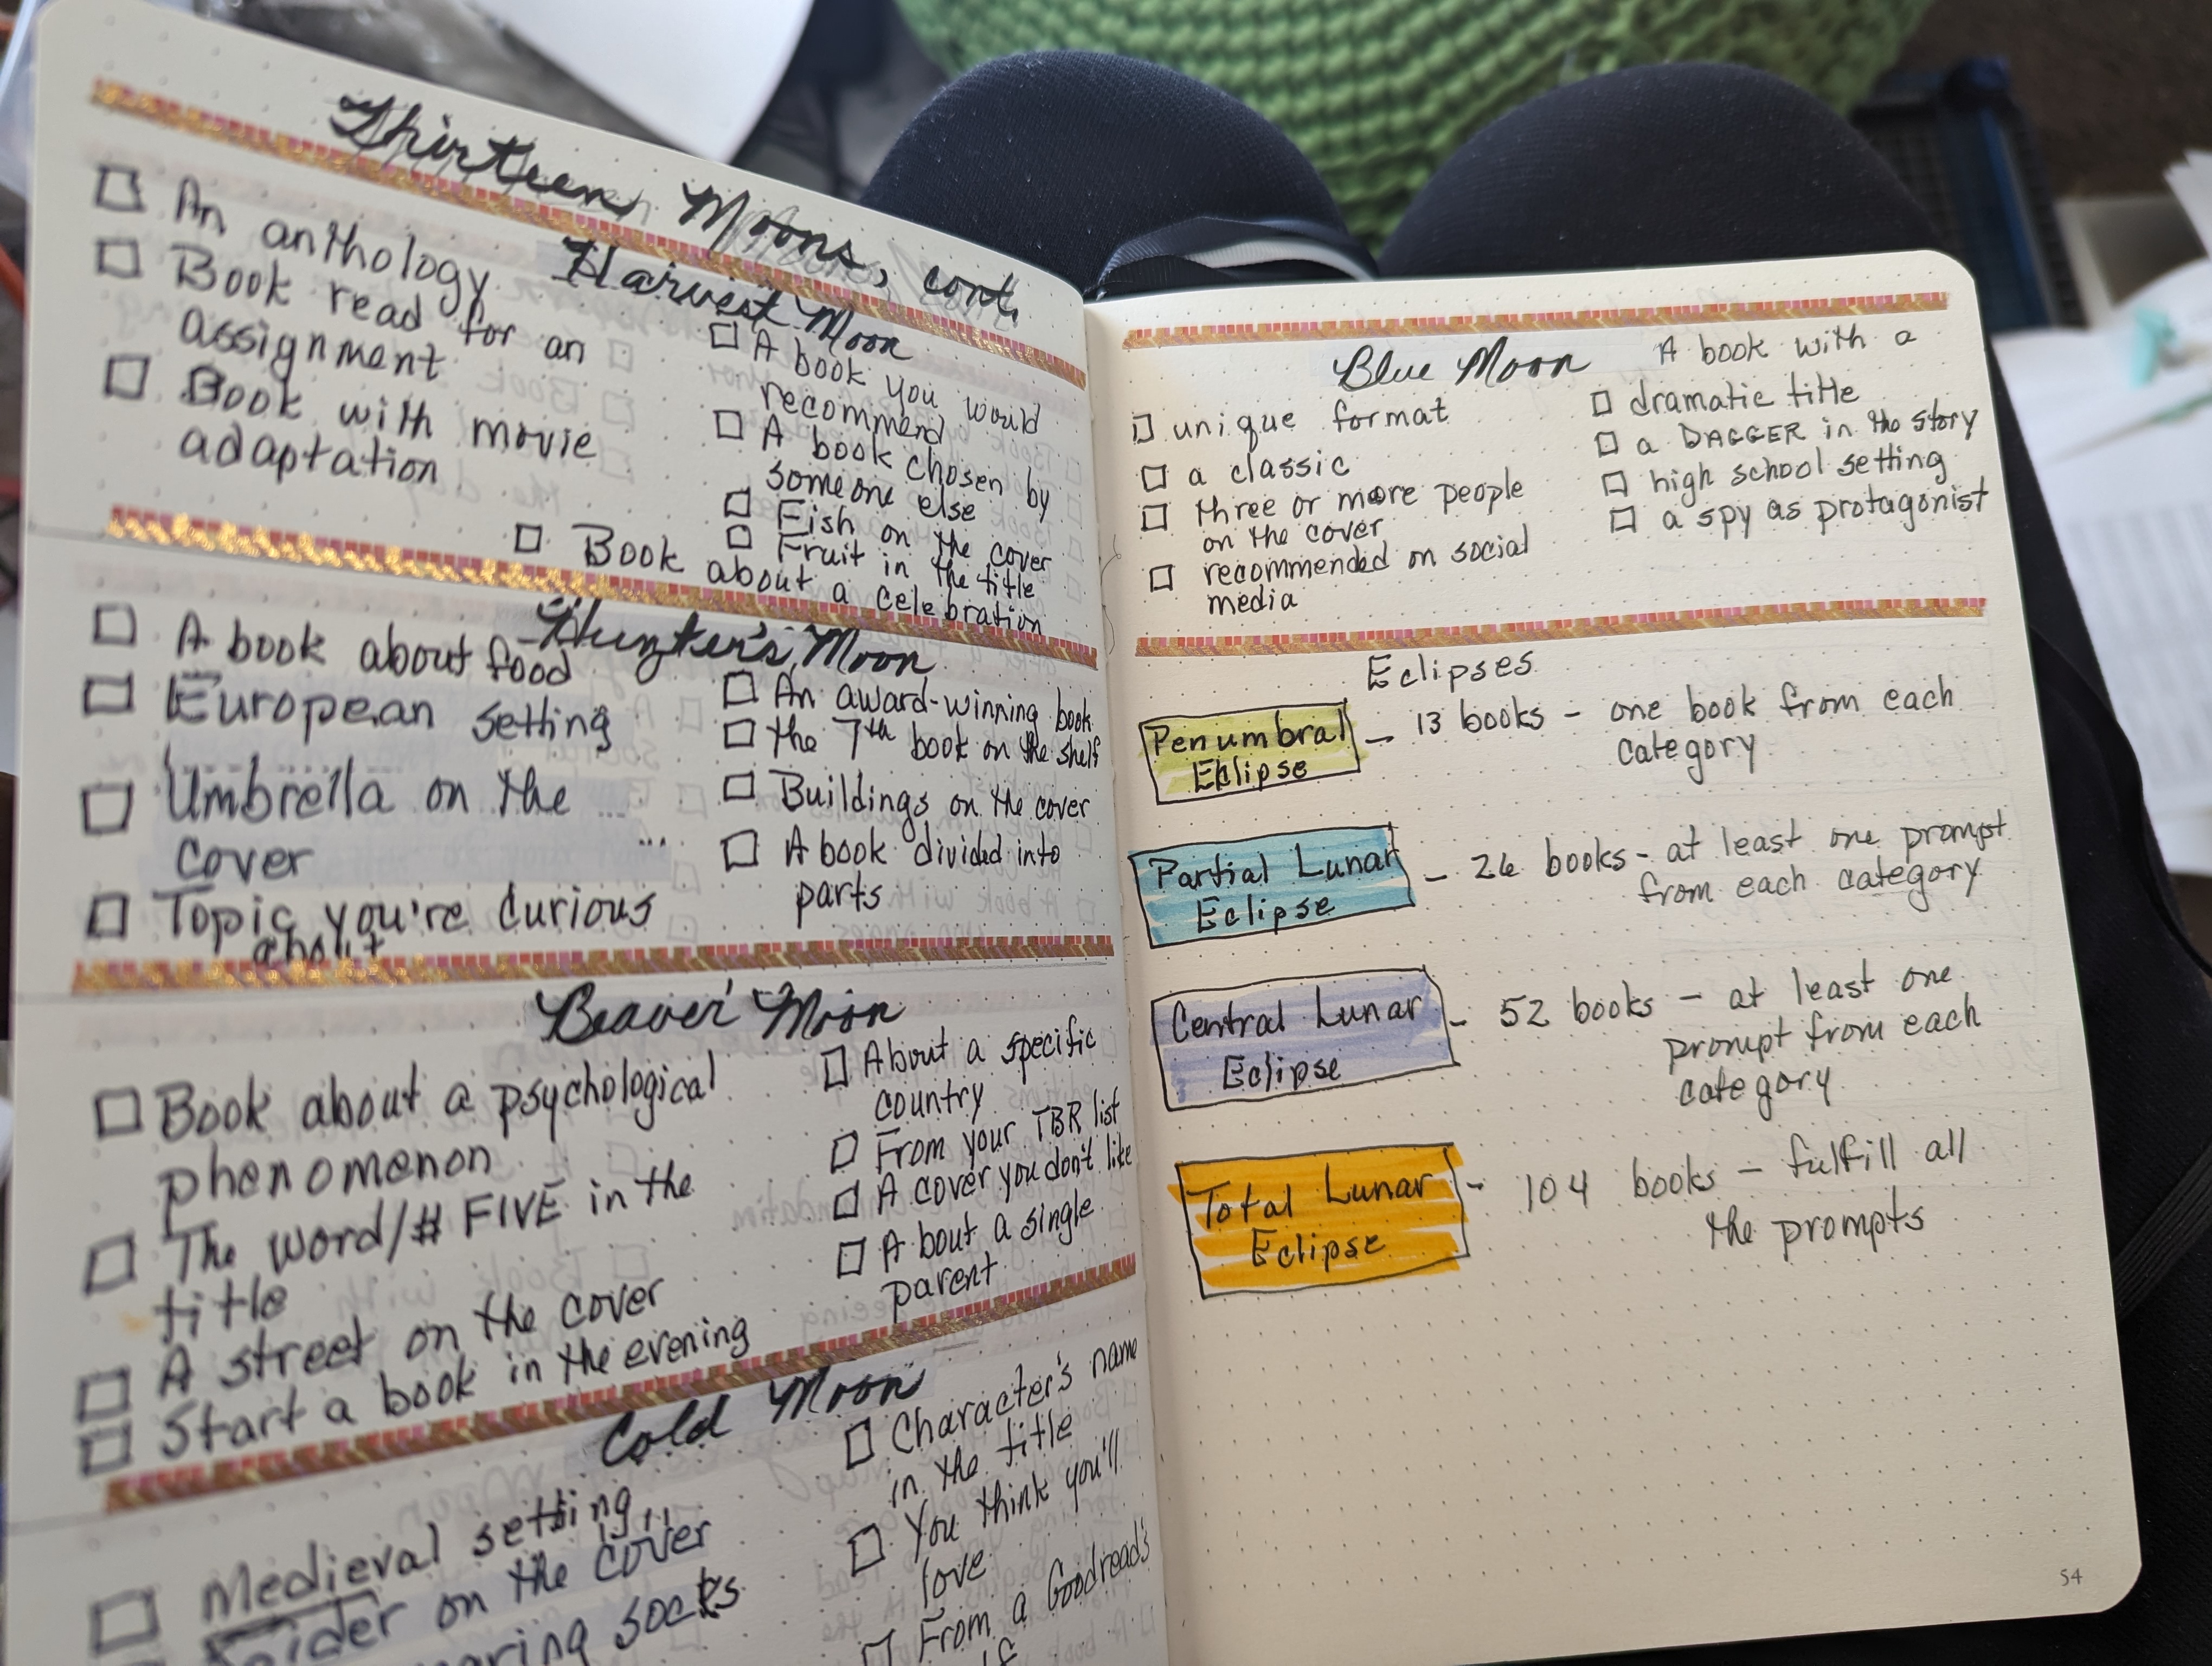 Thirteen Moons, cont.
Harvest Moon
□ An anthology
□ Book read for an
assignment
□ Book with movie
adaptation
□ A book you would
recommend
□ A book chosen by
someone else
□ Fish on the cover
□ Fruit in the title
□ Book about a celebration
Hunter's Moon
□ A book about food
□ European setting
□ Umbrella on the
cover
□ Topic you're curious
about
□ An award-winning book
□ the 7th book on the shelf
□ Buildings on the cover
□ A book divided into
parts
Beaver Moon
□ Book about a psychological
phenomenon
□ The word/# FIVE in the
title
□ A street on the cover
□ Start a book in the evening
□ About a specific
country
□ From your TBR list
□ A cover you don't like
□ About a single
parent
Cold Moon
□ Medieval setting
on the cover
socks
□ Character's name
in the title
□ You think you'll
love
□ From a Goodreads
Blue Moon
A book with a
□ unique format
□ a classic
□ three or more people
on the cover
□ recommended on social
media
□ dramatic title
□ a DAGGER in the story
□ high school setting
□ a spy as protagonist
Eclipses
Penumbral
Eclipse
– 13 books – one book from each
category
Partial Lunar
Eclipse
– 26 books – at least one prompt
from each category
Central Lunar
Eclipse
– 52 books – at least one
prompt from each
category
Total Lunar
Eclipse
– 104 books – fulfill all
the prompts
54